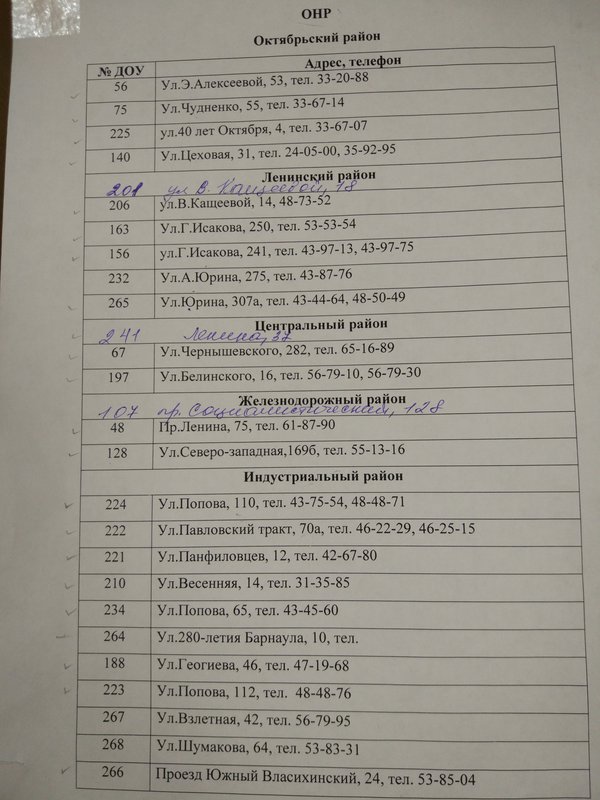 ОНР
Октябрьский район
№ ДОУ Адрес, телефон
56 Ул.Э.Алексеевой, 53, тел. 33-20-88
75 Ул.Чудненко, 55, тел. 33-67-14
225 ул.40 лет Октября, 4, тел. 33-67-07
140 Ул.Цеховая, 31, тел. 24-05-00, 35-92-95
Ленинский район
201 ул В. Кащеевой, 18
206 ул.В.Кащеевой, 14, 48-73-52
163 Ул.Г.Исакова, 250, тел. 53-53-54
156 ул.Г.Исакова, 241, тел. 43-97-13, 43-97-75
232 Ул.А.Юрина, 275, тел. 43-87-76
265 Ул.Юрина, 307а, тел. 43-44-64, 48-50-49
Центральный район
241 Ленина, 37
67 Ул.Чернышевского, 282, тел. 65-16-89
197 Ул.Белинского, 16, тел. 56-79-10, 56-79-30
Железнодорожный район
107 пр. Социалистический, 128
48 Пр.Ленина, 75, тел. 61-87-90
128 Ул.Северо-западная,169б, тел. 55-13-16
Индустриальный район
224 Ул.Попова, 110, тел. 43-75-54, 48-48-71
222 Ул.Павловский тракт, 70а, тел. 46-22-29, 46-25-15
221 Ул.Панфиловцев, 12, тел. 42-67-80
210 Ул.Весенняя, 14, тел. 31-35-85
234 Ул.Попова, 65, тел. 43-45-60
264 Ул.280-летия Барнаула, 10, тел.
188 Ул.Геогиева, 46, тел. 47-19-68
223 Ул.Попова, 112, тел. 48-48-76
267 Ул.Взлетная, 42, тел. 56-79-95
268 Ул.Шумакова, 64, тел. 53-83-31
266 Проезд Южный Власихинский, 24, тел. 53-85-04